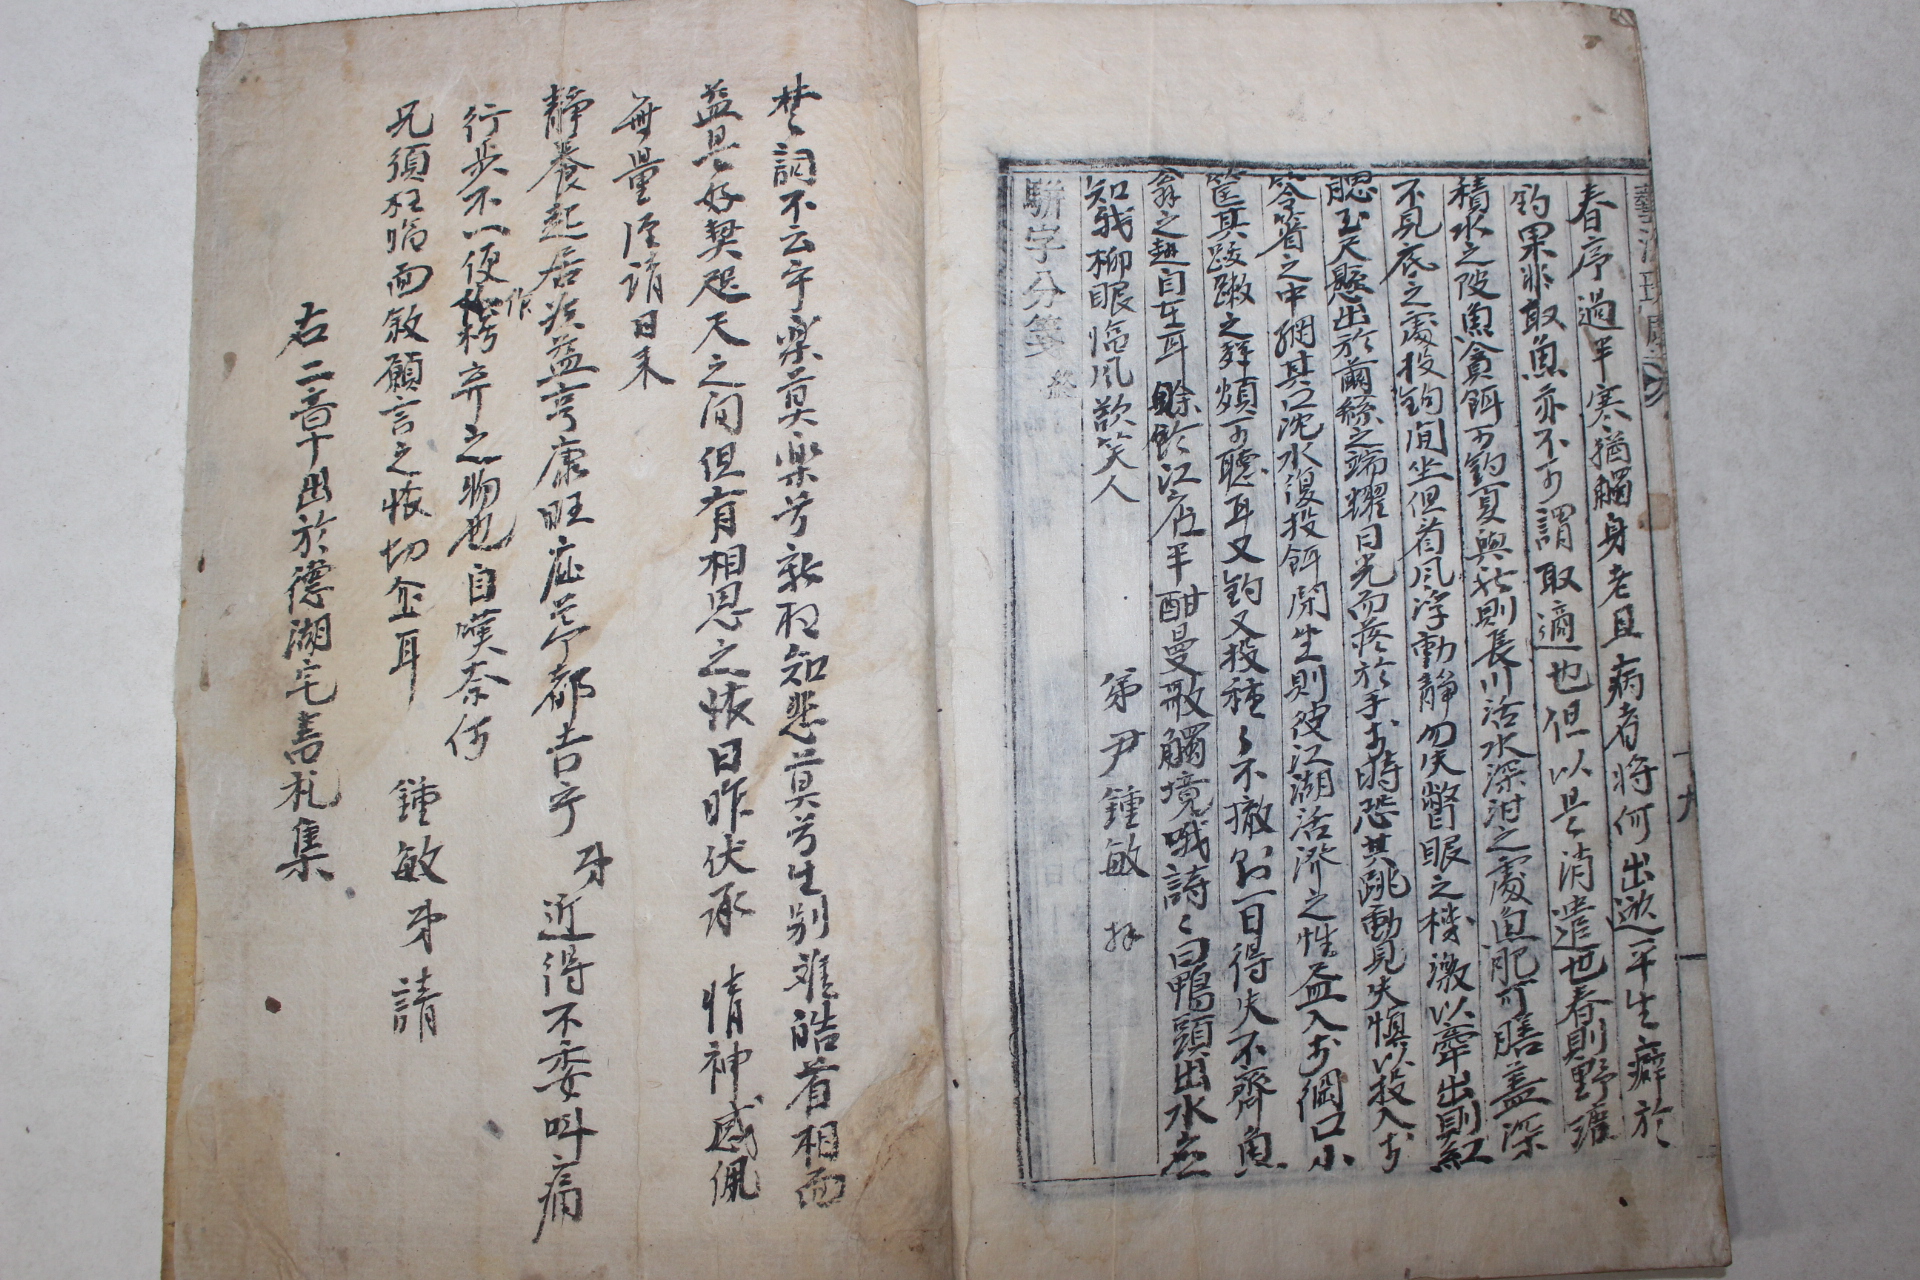 春序過半寒猶觸身老且病者將何出遊平生癖於
釣果非取魚亦不可謂取適也但以是消遣也春則野塘
積水之陂魚貪餌可釣夏與秋則長川活水深泔之處魚肥可膳盖深
不見底之處投鉤間坐但看風浮動靜勿失瞥眼之機激以牽出則紅
腮玉尺懸出於繭絲之端耀日光而疼於手於時恐其跳動見失愼以投入於
笭箵之中網其口沈水復投餌閑坐則彼江湖活潑之性盆入於網口小
筐其跋蹴之聲頗可聽耳又釣又投種〻不撤終一日得失不齊魚
翁之趣自在耳賖於江店半酣曼歌觸境哦詩〻曰鴨頭出水應
知我柳眼臨風欲笑人
弟尹鍾敏拜
騈字分箋 終
十九
楚詞不云乎樂莫樂兮新相知悲莫兮生别難皓首相面
益是好契咫尺之间但有相思之懷日昨伏承 情神感佩
無量謹請日來
靜養起居珍益亨康旺庇荨都吉乎 弟近得不委叫痛
行步不以便作樗弃之物也自嘆奈何
兄須枉臨而敘願言之懷切企耳 鍾敏弟請
右二音十出於德湖宅書札集